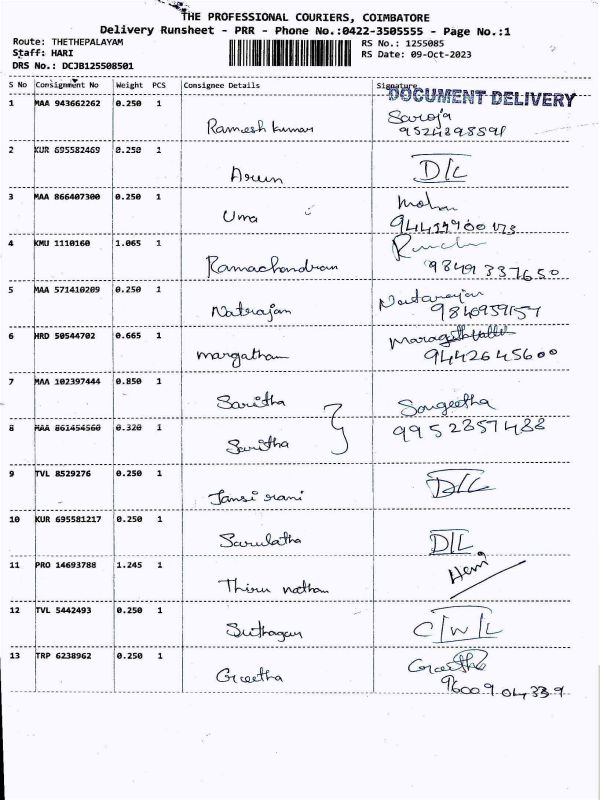 THE PROFESSIONAL COURIERS, COIMBATORE
Delivery Runsheet - PRR - Phone No.:0422-3505555 - Page No.:1
Route: THETHEPALAYAM RS No.: 1255085
Staff: HARI RS Date: 09-Oct-2023
DRS No.: DCJB125508501
S No Consignment No Weight PCS Consignee Details Signature
DOCUMENT DELIVERY
1 MAA 943662262 0.250 1 Ramesh kumar Saroja
9524398598
2 KUR 695582469 0.250 1 Arun D/L
3 MAA 866407300 0.250 1 Uma Mohan
4 KMU 1110160 1.065 1 Ramachandran
9849337650
5 MAA 571410209 0.250 1 Natrajan Natarajan
9840959157
6 HRD 50544702 0.665 1 margatham
9442645600
7 MAA 102397444 0.850 1 Saritha Sangeetha
8 MAA 861454560 0.320 1 Saritha 9952357488
9 TVL 8529276 0.250 1 Jansi rani D/L
10 KUR 695581217 0.250 1 Sarulatha D/L
11 PRO 14693788 1.245 1 Thiru nathan Heni
12 TVL 5442493 0.250 1 Suthagar C/W/L
13 TRP 6238962 0.250 1 Geetha Geetha
9600904339